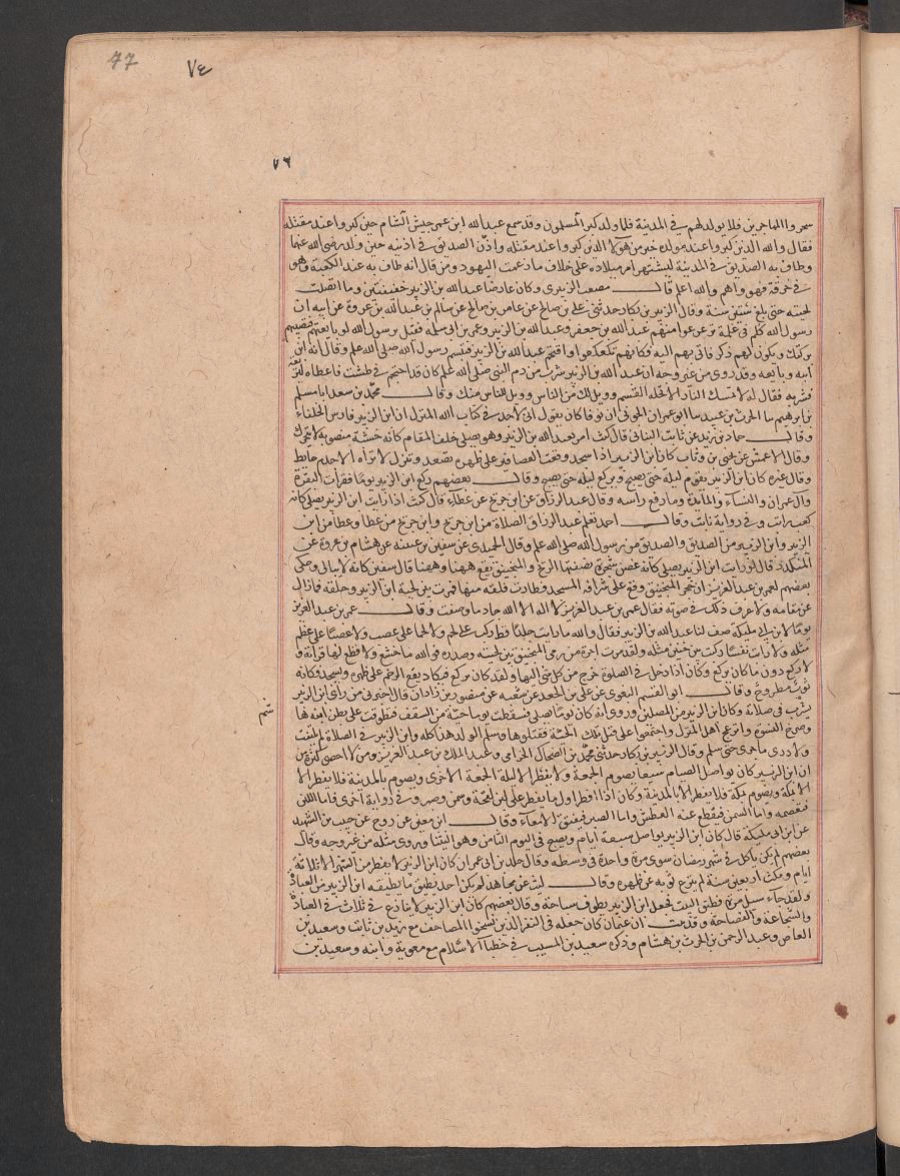 77
٧٤
٧٦
سحروا المهاجرين فلا يولد لهم في المدينة فلما ولد كبر المسلمون وقد سمع عبد الله ابن عمر جيش الشام حين كبروا عند مقتله
فقال والله الذين كبروا عند مولده خير من هؤلاء الذين كبروا عند مقتله واذّن الصديق في اذنيه حين ولد رضي الله عنهما
وطاف به الصديق في المدينة ليشتهر امر ميلاده على خلاف ما زعمت اليهود ومن قال انه طاف به عند الكعبة وهو
في خرقة فهو واهم والله اعلم قال مصعب الزبيري وكان عارضا عبد الله بن الزبير خفيفين وما اتصلت
لحيته حتى بلغ ستين سنة وقال الزبير بن بكار حدثني علي بن صالح عن عامر بن صالح عن سالم بن عبد الله بن عروة عن ابيه ان
رسول الله كلم في غلمة ترعرعوا منهم عبد الله بن جعفر وعبد الله بن الزبير وعمر بن ابي سلمة فقيل يرسول الله لو بايعتهم فتصيبهم
بركتك ويكون لهم ذكر فاتي بهم اليه فكانهم تكعكعوا واقتحم عبد الله بن الزبير فتبسم رسول الله صلى الله علم وقال انه ابن
ابيه وبايعه وقد روي من غير وجه ان عبد الله بن الزبير شرب من دم النبي صلى الله علم كان قد احتجم في طشت فاعطاه ليريقه
فشربه فقال له لا تمسك النار الا تحلة القسم وويل لك من الناس وويل للناس منك وقال محمد بن سعد ابا مسلم
بن ابرهيم سا الحرث بن عبيد سا ابو عمران الجوني ان نوفا كان يقول اني لاجد في كتاب الله المنزل ان ابن الزبير فارس الخلفاء
وقال حماد بن زيد عن ثابت البناني قال كنت امر بعبد الله بن الزبير وهو يصلي خلف المقام كانه خشبة منصوبة لا تتحرك
وقال الاعمش عن يحيى بن وثاب كان ابن الزبير اذا سجد وقعت العصافير على ظهره تصعد وتنزل لا تراه الا جذم حايط
وقال غيره كان ابن الزبير يقوم ليله حتى يصبح ويركع ليله حتى يصبح وقال بعضهم ركع ابن الزبير يوما فقرات البقرة
وال عمران والنساء والمايدة وما رفع راسه وقال عبد الرزاق عن ابن جريج عن عطاء قال كنت اذا رايت ابن الزبير يصلي كانه
كعب راتب وفي رواية ثابت وقال احمد تعلم عبد الرزاق الصلاة من ابن جريج وابن جريج من عطا وعطا من ابن
الزبير وابن الزبير من الصديق والصديق من رسول الله صلى الله علم وقال الحميدي عن سفين بن عيينه عن هشام بن عروة عن
المنكدر قال لو رايت ابن الزبير يصلي كانه غصن شجرة يصفقها الريح والمنجنيق يقع ههنا وههنا قال سفين كانه لا يبالي وحكى
بعضهم لعمر بن عبد العزيز ان حجرا من المنجنيق وقع على شرافة المسجد وطارت فلقة منها فمرت بين لحية ابن الزبير وحلقه فما زال
عن مقامه ولا عرف ذلك في صوته فقال عمر بن عبد العزيز لا اله الا الله جاد ما وصفت وقال عمر بن عبد العزيز
يوما لابن ابي مليكة صف لنا عبد الله بن الزبير فقال والله ما رايت جلدا قط ركب على لحم ولا لحما على عصب ولا عصبا على عظم
مثله ولا رايت نفسا ركبت بين جنبين مثله ولقد مرت اجرة من رمي المنجنيق بين لحيته وصدره فوالله ما خشع ولا قطع لها قراءته ولا
لا ركع دون ما كان يركع وكان اذا دخل في الصلوة خرج من كل شي اليها ولقد كان يركع فيكاد يقع الرخم على ظهره ويسجد وكانه
ثوب مطروح وقال ابو القسم البغوي عن علي بن الجعد عن شعبة عن منصور بن زاذان قال اخبرني من راى ابن الزبير
يشرب في صلاته وكان ابن الزبير من المصلين وروي انه كان يوما يصلي فسقطت يوما حية من السقف فتطوقت على بطن ابنه هاشم
وصرخ النسوة وانزعج اهل المنزل واجتمعوا على قتل تلك الحية فقتلوها وسلم الولد هذا كله وابن الزبير في الصلاة لم يلتفت
ولا درى ما جرى حتى سلم وقال الزبير بن بكار حدثني محمد بن الضحاك الخزامي وعبد الملك بن عبد العزيز ومن لا احصي كثرة من
ان ابن الزبير كان يواصل الصيام سبعا يصوم الجمعة ولا يفطر الا ليلة الجمعة الاخرى ويصوم بالمدينة فلا يفطر الا
الا بمكة ويصوم بمكة فلا يفطر الا بالمدينة وكان اذا افطر اول ما يفطر على لبن لقحة وسمن وصبر وفي رواية اخرى فاما اللبن
فيعصمه واما السمن فيقطع عنه العطش واما الصبر فيفتق الامعاء وقال ابن معين عن روح عن حبيب بن الشهيد
عن ابن ابي مليكة قال كان ابن الزبير يواصل سبعة ايام ويصبح في اليوم الثامن وهو اليثنا وروي مثله من غير وجه وقال
بعضهم لم يكن ياكل في شهر رمضان سوى مرة واحدة في وسطه وقال خلد بن ابي عمران كان ابن الزبير لا يفطر من الشهر الا ثلاثة
ايام ومكث اربعين سنة لم ينزع ثوبه عن ظهره وقال ليث عن مجاهد لم يكن احد يطيق ما يطيقه ابن الزبير من العبادة
ولقد جاء سيل مرة فطبق البيت فجعل ابن الزبير يطوف سباحة وقال بعضهم كان ابن الزبير لا ينازع في ثلاث في العبادة
والشجاعة والفصاحة وقد ثبت ان عثمان كان جعله في النفر الذين نسخوا المصاحف مع زيد بن ثابت وسعيد بن
العاص وعبد الرحمن بن الحرث بن هشام وذكره سعيد بن المسيب في خطبا الاسلام مع معوية وابنه وسعيد بن